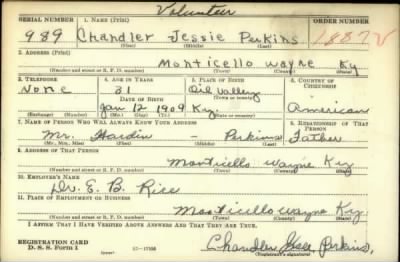 Volunteer
SERIAL NUMBER 1. NAME (Print) ORDER NUMBER
989 Chandler Jessie Perkins 1887 V
(First) (Middle) (Last)
2. ADDRESS (Print)
Monticello Wayne Ky
(Number and street or R. F. D. number) (Town) (County) (State)
3. TELEPHONE 4. AGE IN YEARS 5. PLACE OF BIRTH 6. COUNTRY OF CITIZENSHIP
None 31 Oil Valley
DATE OF BIRTH (Town or county)
Jan 12 1909 Ky. American
(Exchange) (Number) (Mo.) (Day) (Yr.) (State or country)
7. NAME OF PERSON WHO WILL ALWAYS KNOW YOUR ADDRESS 8. RELATIONSHIP OF THAT PERSON
Mr. Hardin - Perkins Father
(Mr., Mrs., Miss) (First) (Middle) (Last)
9. ADDRESS OF THAT PERSON
Monticello Wayne Ky
(Number and street or R. F. D. number) (Town) (County) (State)
10. EMPLOYER'S NAME
Dr. E. B. Rice
11. PLACE OF EMPLOYMENT OR BUSINESS
Monticello Wayne Ky
(Number and street or R. F. D. number) (Town) (County) (State)
I AFFIRM THAT I HAVE VERIFIED ABOVE ANSWERS AND THAT THEY ARE TRUE.
REGISTRATION CARD
D. S. S. Form 1 Chandler Perkins,
(Registrant's signature)